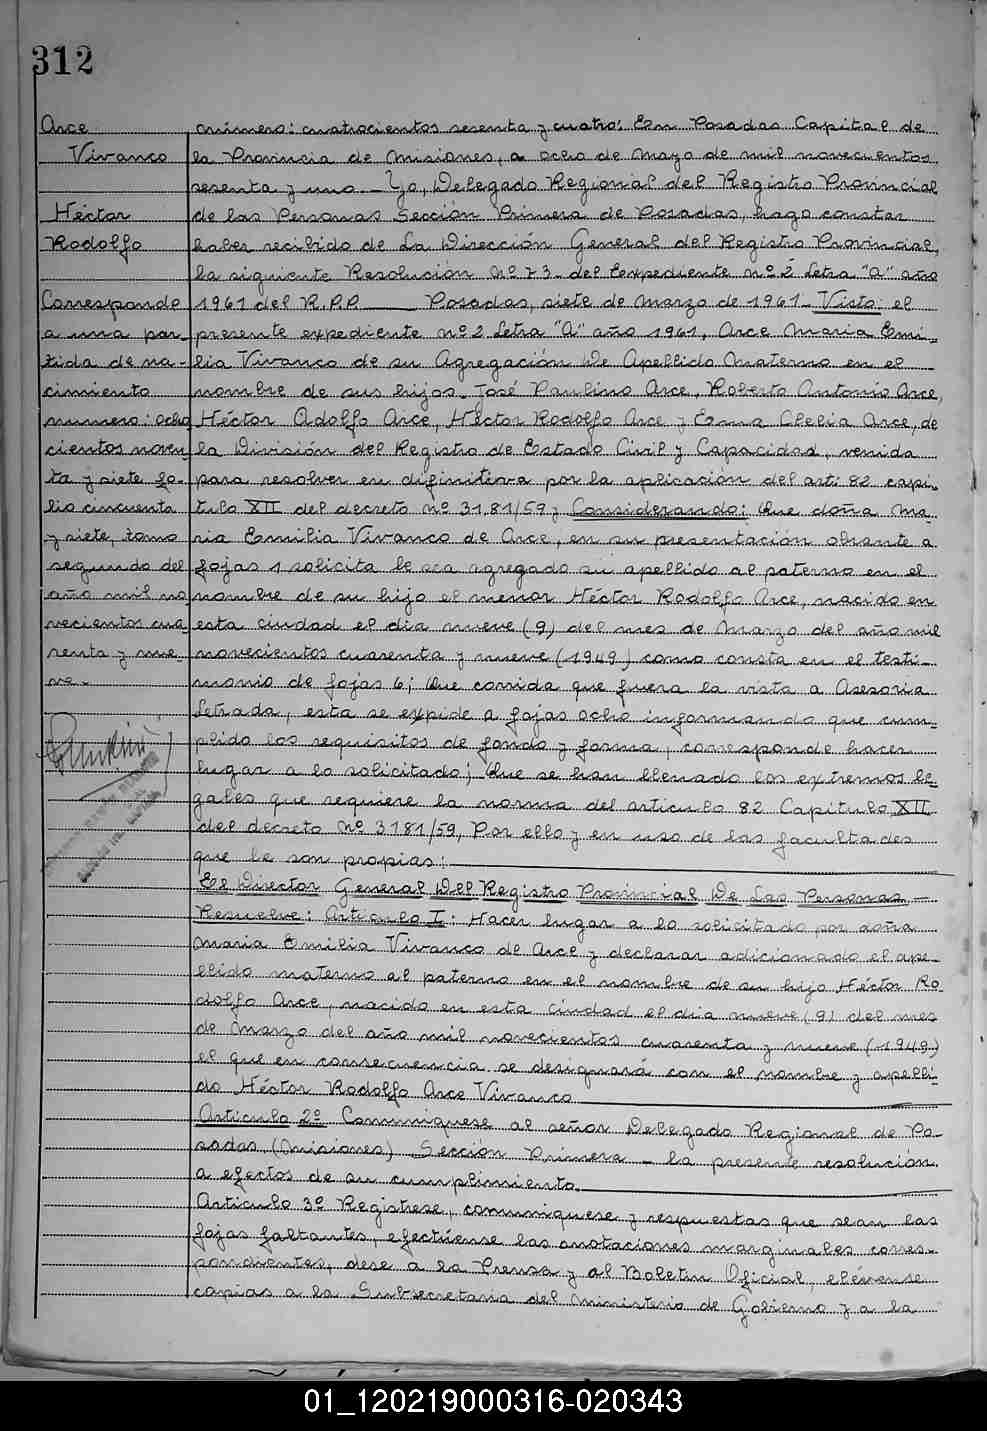 312
Arce
Vivanco
Héctor
Rodolfo
Corresponde
a una par-
tida de na-
cimiento
numero: ocho
cientos noven-
ta y siete fo-
lio cincuenta
y siete, tomo
segundo del
año mil no
vecientos cua
renta y nue-
ve.-
número: cuatrocientos sesenta y cuatro: En Posadas Capital de
la Provincia de Misiones, a ocho de Mayo de mil novecientos
sesenta y uno.- Yo, Delegado Regional del Registro Provincial
de las Personas Sección Primera de Posadas, hago constar
haber recibido de La Dirección General del Registro Provincial,
la siguiente Resolución Nº 73- del Expediente nº 2 Letra "A" año
1961 del R.P.P. Posadas, siete de Marzo de 1961- Visto: el
presente expediente nº 2 Letra "A" año 1961, Arce Maria Emi-
lia Vivanco de su Agregación De Apellido Materno en el
nombre de sus hijos- José Paulino Arce, Roberto Antonio Arce,
Héctor Adolfo Arce, Héctor Rodolfo Arce y Ema Clelia Arce, de
la División del Registro de Estado Civil y Capacidad, venida
para resolver en difinitiva por la aplicación del art: 82 capi-
tulo XII del decreto nº 3181/59 y Considerando: Que doña Ma-
ria Emilia Vivanco de Arce, en su presentación obrante a
fojas 1 solicita le sea agregado su apellido al paterno en el
nombre de su hijo el menor Héctor Rodolfo Arce, nacido en
esta ciudad el dia nueve (9) del mes de Marzo del año mil
novecientos cuarenta y nueve (1949) como consta en el testi-
monio de fojas 6; Que corrida que fuera la vista a Asesoria
Letrada, esta se expide a fojas ocho informando que cum-
plido los requisitos de fondo y forma, corresponde hacer
lugar a lo solicitado; Que se han llenado los extremos le-
gales que requiere la norma del articulo 82 Capitulo XII
del decreto Nº 3181/59, Por ello y en uso de las facultades
que le son propias:
El Director General Del Registro Provincial De Las Personas -
Resuelve: Articulo I: Hacer lugar a lo solicitado por doña
Maria Emilia Vivanco de Arce y declarar adicionado el ape-
llido materno al paterno en el nombre de su hijo Héctor Ro-
dolfo Arce, nacido en esta ciudad el dia nueve (9) del mes
de Marzo del año mil novecientos cuarenta y nueve (1949)
el que en consecuencia se designará con el nombre y apelli-
do Héctor Rodolfo Arce Vivanco
Articulo 2º Comuniquese al señor Delegado Regional de Po-
sadas, (Misiones) Sección Primera - la presente resolución
a efectos de su cumplimiento.
Articulo 3º Registrese, comuniquese y respuestas que sean las
fojas faltantes, efectúense las anotaciones marginales corres-
pondientes, dese a la Prensa y al Boletin Oficial, elévense
copias a la Subsecretaria del Ministerio de Gobierno y a la
01_120219000316-020343